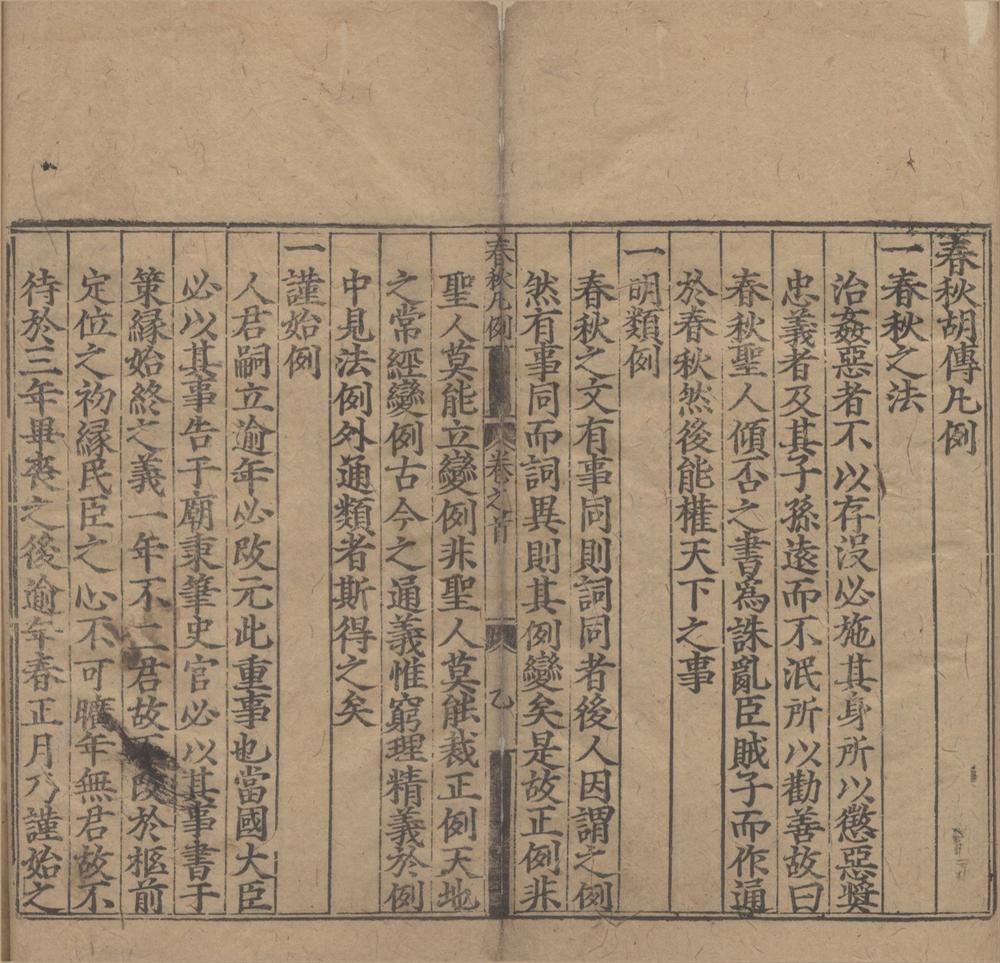 春秋胡傳凡例
一春秋之法
治姦惡者不以存没必施其身所以懲惡奬
忠義者及其子孫逺而不泯所以勸善故曰
春秋聖人傾否之書爲誅亂臣賊子而作通
於春秋然後能權天下之事
一明類例
春秋之文有事同則詞同者後人因謂之例
然有事同而詞異則其例變矣是故正例非
春秋凡例 卷之首 乙
聖人莫能立變例非聖人莫能裁正例天地
之常經變例古今之通義惟窮理精義於例
中見法例外通類者斯得之矣
一謹始例
人君嗣立逾年必改元此重事也當國大臣
必以其事告于廟秉筆史官必以其事書于
策縁始終之義一年不二君故不改於柩前
定位之初縁民臣之心不可曠年無君故不
待於三年畢喪之後逾年春正月乃謹始之